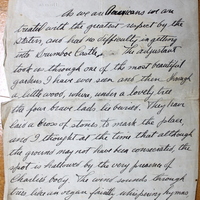 As we are Americans we are
treated with the greatest respect by the
sisters, and had no difficulty in getting
into Drumboe Castle. The adjutant
took us through one of the most beautiful
gardens I have ever seen and then through
a little wood, where, under a lovely tree
the four brave lads lie buried. They have
laid a cross of stones to mark the place
and I thought at the time that although
the ground may not have been consecrated, the
spot is hallowed by the very presence of
Charlie's body. The wind sounds through
trees like an organ faintly whispering hymns